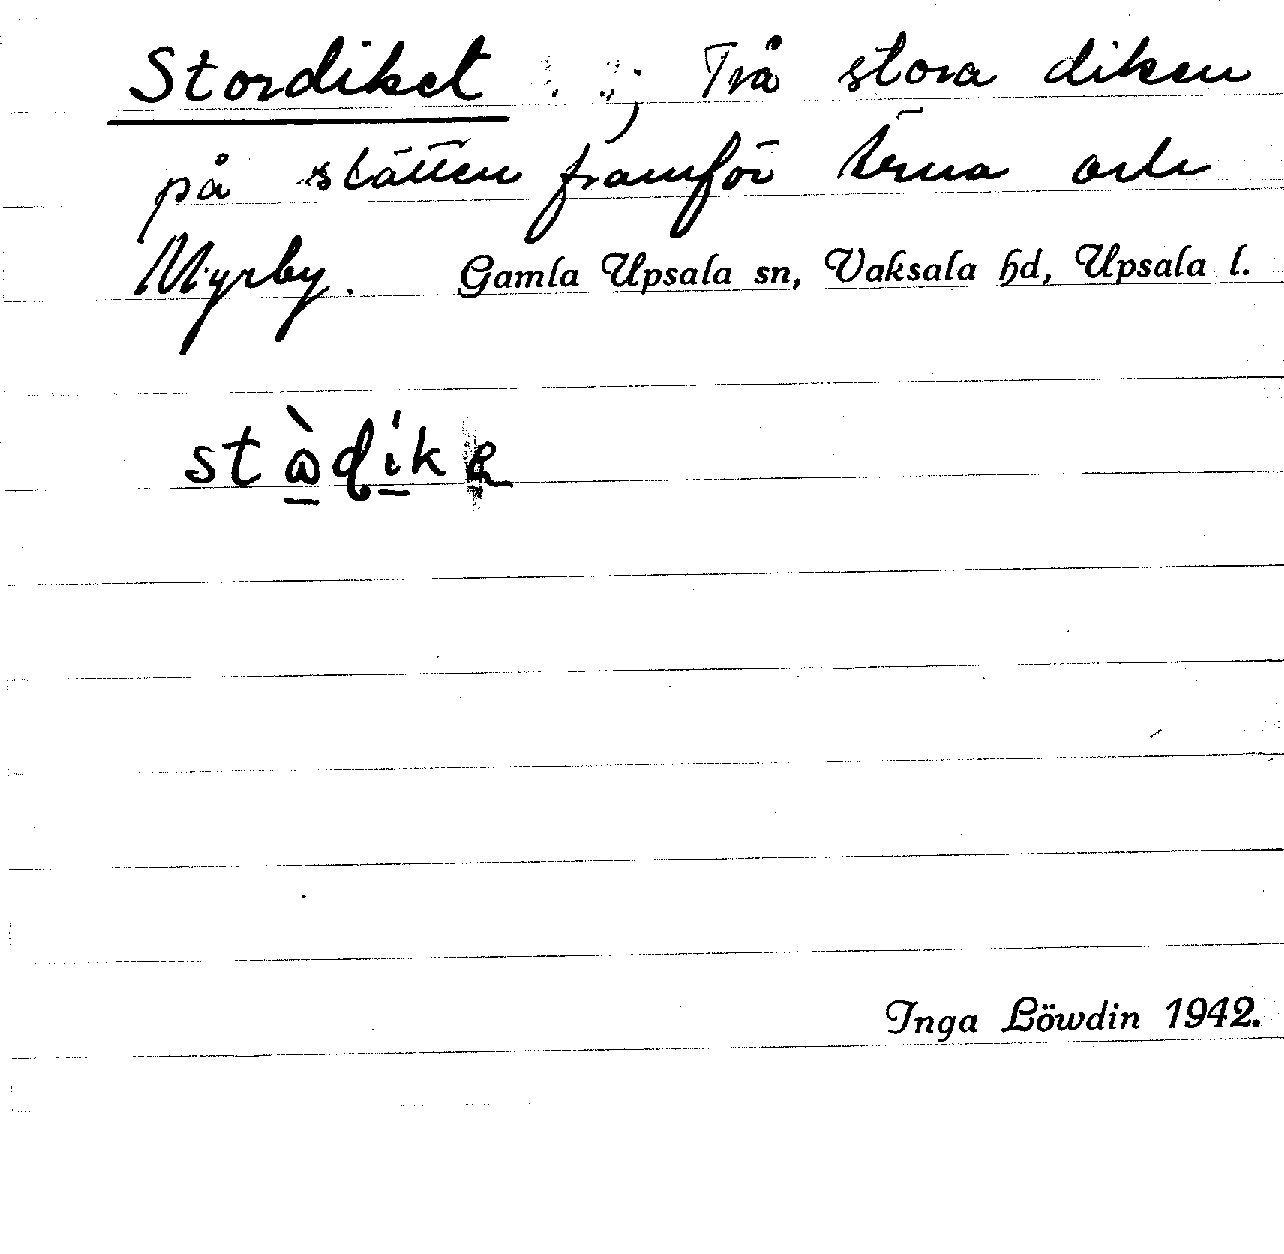 Stordiket ; Två stora diken
på slätten framför Ärna och
Myrby. Gamla Upsala sn, Vaksala hd, Upsala l.
Inga Löwdin 1942.